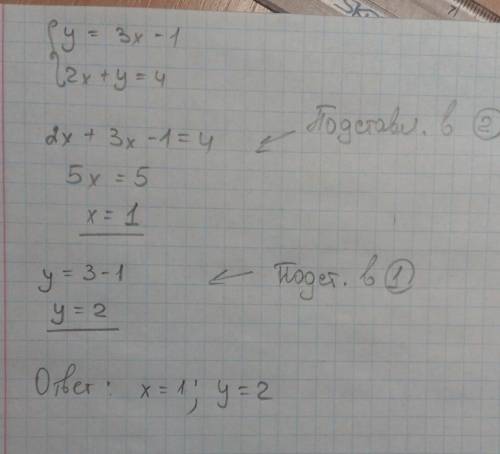 { y = 3x - 1
2x + y = 4
2x + 3x - 1 = 4 ← Подставл. в ②
5x = 5
x = 1
y = 3 - 1 ← Подст. в ①
y = 2
Ответ: x = 1; y = 2